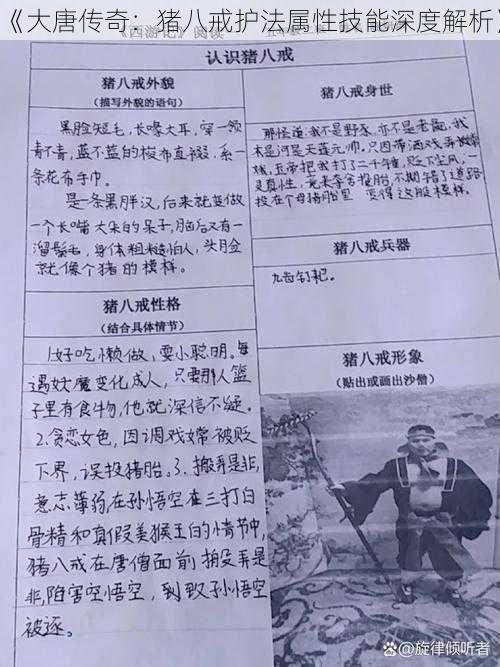 《大唐传奇：猪八戒护法属性技能深度解析》
认识猪八戒
猪八戒外貌
（描写外貌的语句）
黑脸短毛，长喙大耳，穿一领
青不青，蓝不蓝的梭布直裰，系一
条花布手巾。
是一条黑胖汉，后来就变做
一个长嘴大朵的呆子，脑后又有一
溜鬃毛，身体粗糙怕人，头脸
就像个猪的模样。
猪八戒身世
那怪道：我不是野豕，亦不是老彘，我
本是河是天蓬元帅，只因带酒戏弄嫦
娥，玉帝把我打了二千锤，贬下尘凡，一
灵真性，竟来夺舍投胎，不期错了道路
投在个母猪胎里 变得这般模样。
猪八戒兵器
九齿钉耙。
猪八戒性格
（结合具体情节）
1.好吃懒做，耍小聪明。每
遇妖魔变化成人，只要那人篮
子里有食物，他就深信不疑。
2.贪恋女色，因调戏嫦被贬
下界，误投猪胎。3.搬弄是非，
意志薄弱，在孙悟空在三打白
骨精和真假美猴王的情节中，
猪八戒在唐僧面前，搬弄是
非，陷害空悟空，到致孙悟空
被逐。
猪八戒形象
（贴出或画出沙僧）
@旋律倾听者